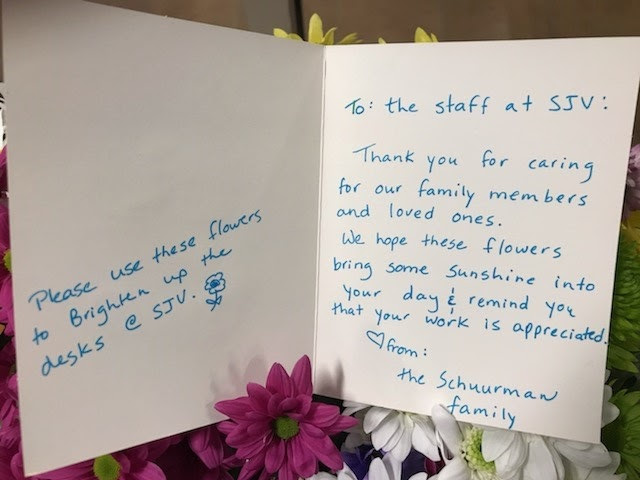 Please use these flowers
to Brighten up the
desks @ SJV.
To: the staff at SJV:
Thank you for caring
for our family members
and loved ones.
We hope these flowers
bring some sunshine into
your day & remind you
that your work is appreciated.
♡from:
the Schuurman
family